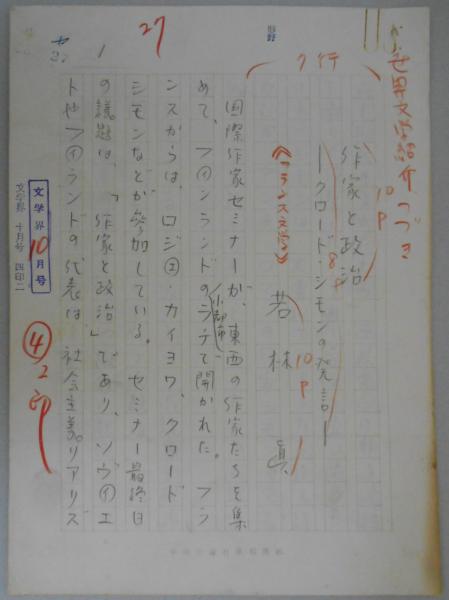 世界文学紹介つづき
10P
7行
作家と政治
―クロード・シモンの発言―
8P
《フランス文学》
若林真
10P
国際作家セミナーが、東西の作家たちを集
めて、フィンランドの小都市ラチで開かれた。フラ
ンスからは、ロジェ・カイヨワ、クロード・
シモンなどが参加している。セミナー最終日
の議題は、「作家と政治」であり、ソヴィエ
トやフィランドの代表は、社会主義リアリズ
27
1
文学界10月号
文学界 十月号 四印二
④工印